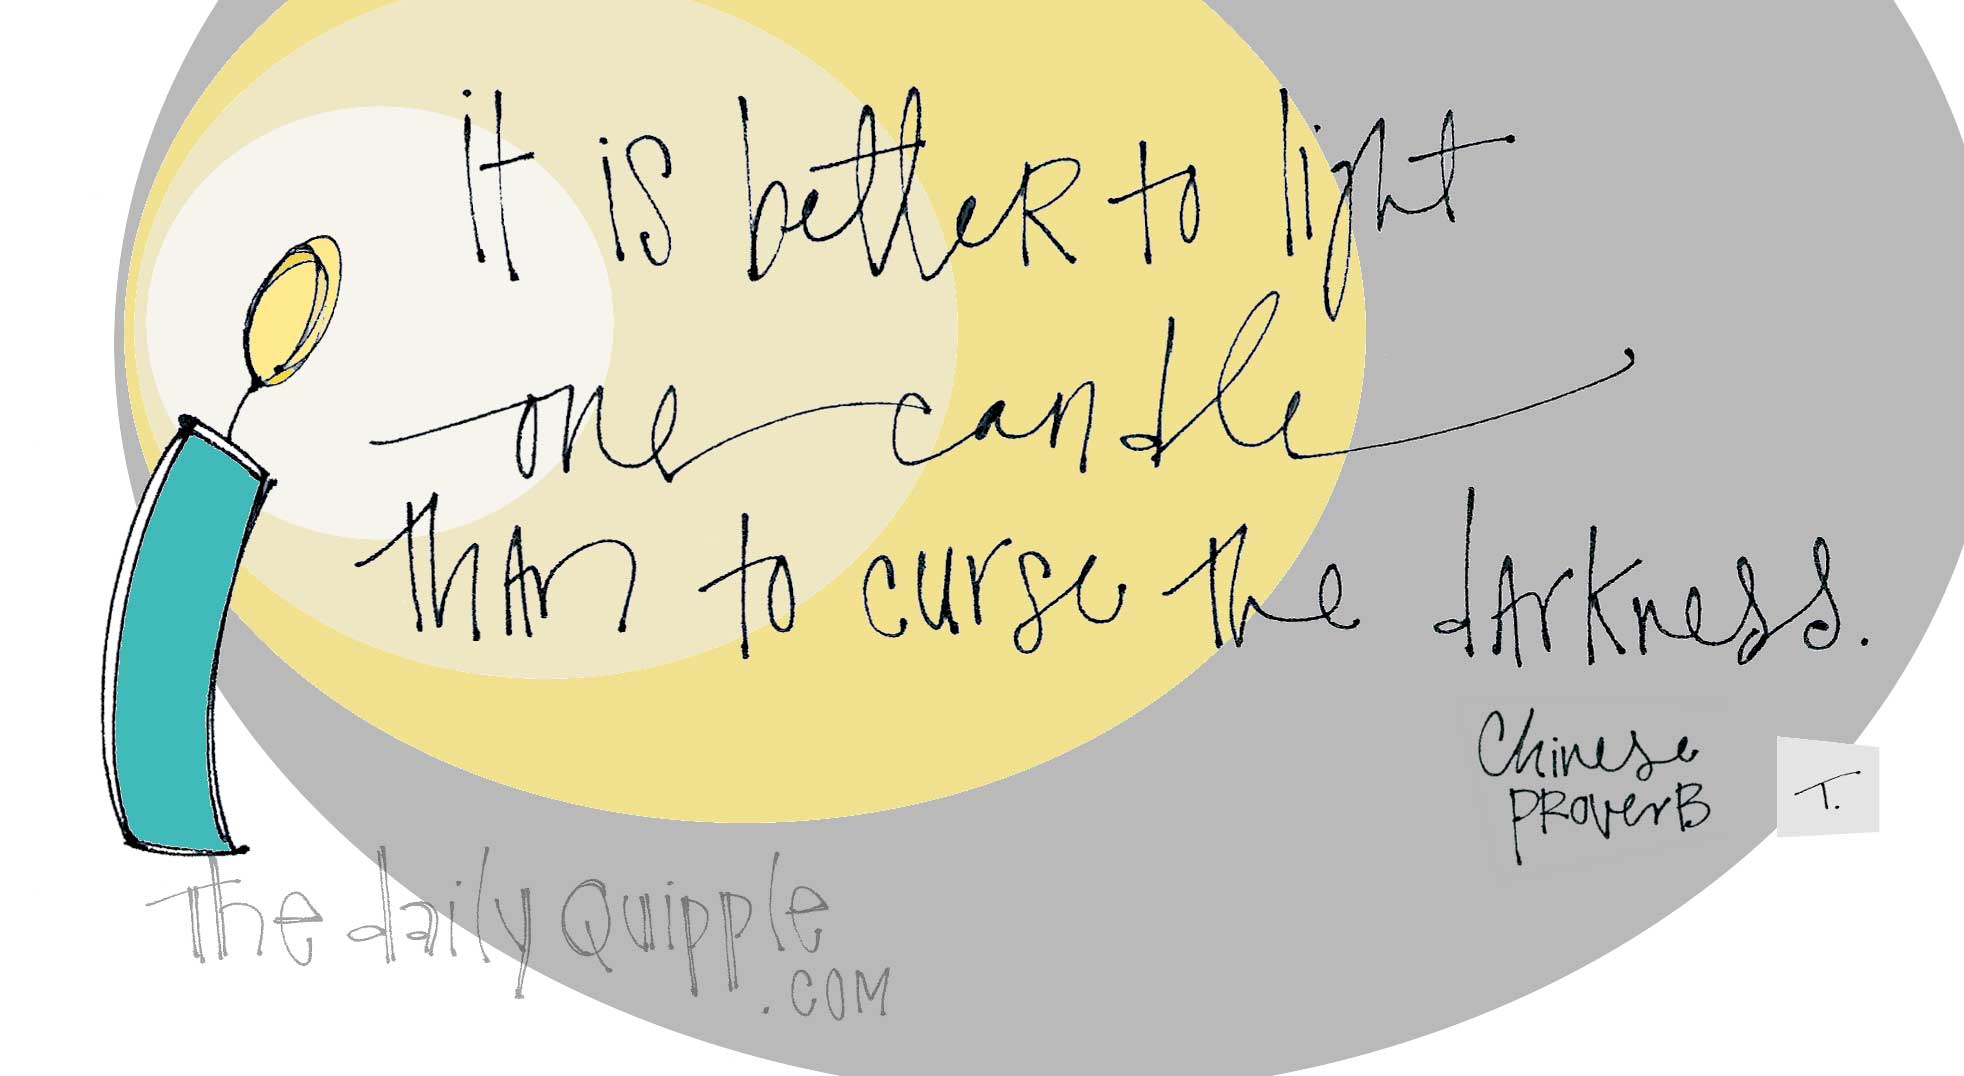 it is better to light
one candle
than to curse the darkness.
Chinese
proverb
T.
The daily Quipple
.com